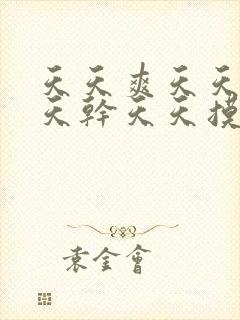 天天爽天天
天幹天天摸
袁金會